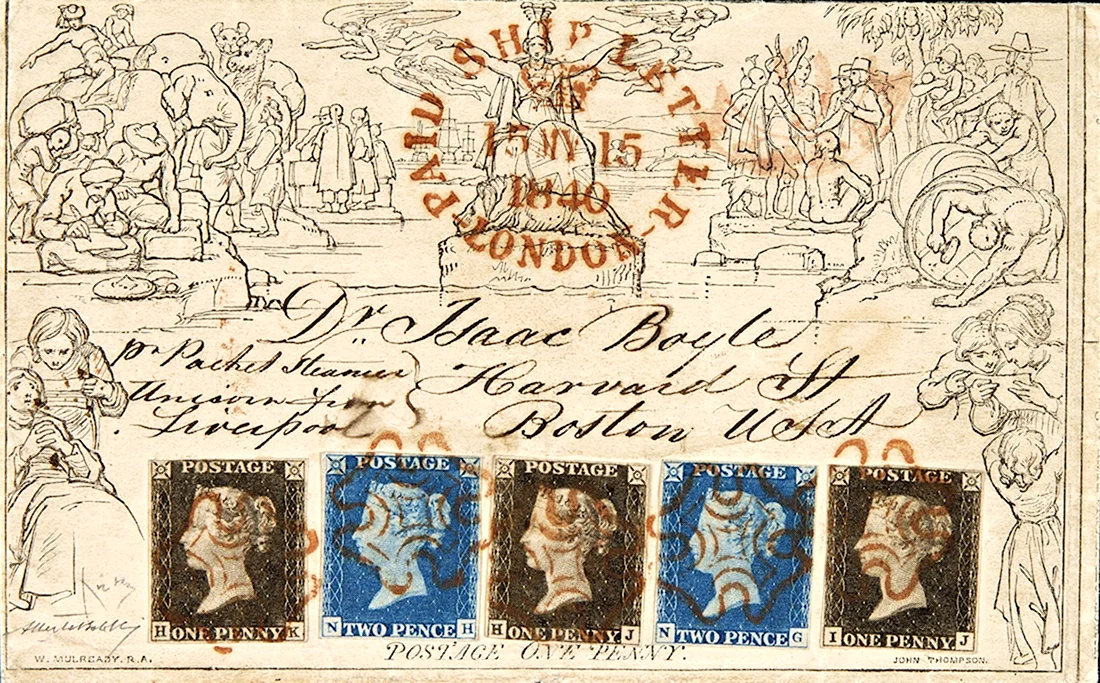 PAID SHIP LETTER
15 MY 15
1840
LONDON
Dr. Isaac Boyle
pr Packet Steamer
Unicorn from
Liverpool
Harvard St
Boston USA
POSTAGE
ONE PENNY
H K
POSTAGE
TWO PENCE
N H
POSTAGE
ONE PENNY
H J
POSTAGE
TWO PENCE
N G
POSTAGE
ONE PENNY
I J
POSTAGE ONE PENNY.
W. MULREADY. R.A.
JOHN THOMPSON.